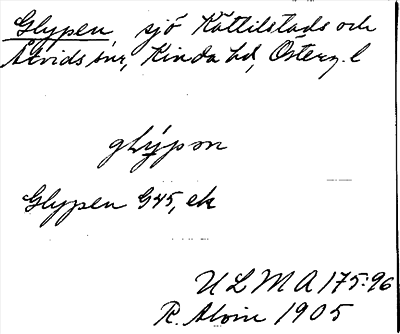 Glypen, sjö Kättilstads och
Åtvids snr, Kinda hd, Österg. l
glýpən
Glypen G45, ek
ULMA 175:96
R. Alvin 1905